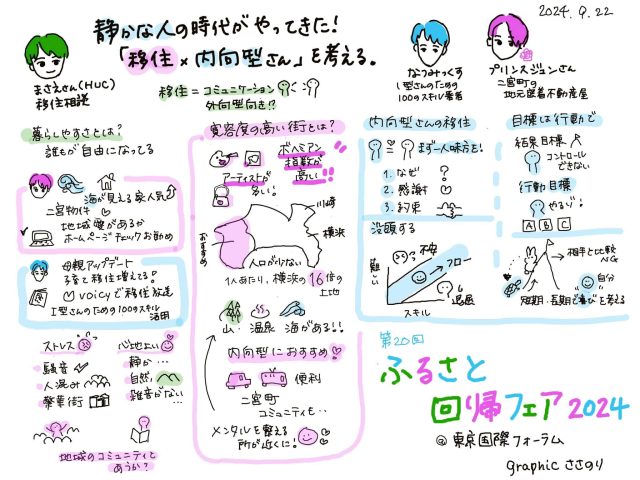 2024.9.22
静かな人の時代がやってきた!
「移住×内向型さん」を考える。
まさえさん(HUC)
移住相談
移住=コミュニケーション
外向型向き!?
なつみっくす
I型さんのための
100のスキル著者
プリンスジュンさん
二宮町の
地元密着不動産屋
暮らしやすさとは?
誰もが自由になってる
海が見える家人気
二宮物件
地域愛があるか
ホームページチェックお勧め
母親アップデート
子育て移住増えてる!
voicyで移住放送
I型さんのための100のスキル
活用
ストレス
騒音
人混み
繁華街
心地よい
静か…
自然
雑音がない…
地域のコミュニティと
あうか?
寛容度の高い街とは?
ボヘミアン
指数が
高い
アーティストが
多い!
川崎
横浜
おすすめ
人口が少ない
1人あたり、横浜の16倍の
土地
山・温泉 海がある!!
内向型におすすめ
便利
二宮町
コミュニティも…
メンタルを整える
所が近くに!
内向型さんの移住
まず一人味方を!
1. なぜ?
2. 感謝
3. 約束
没頭する
難しい
不安
フロー
退屈
スキル
目標は行動で
結果目標
コントロール
できない
行動目標
やるぞ!
A B C
相手と比較
NG
自分
短期・長期で喜びを考える
第20回
ふるさと
回帰フェア2024
@東京国際フォーラム
graphic ささのり